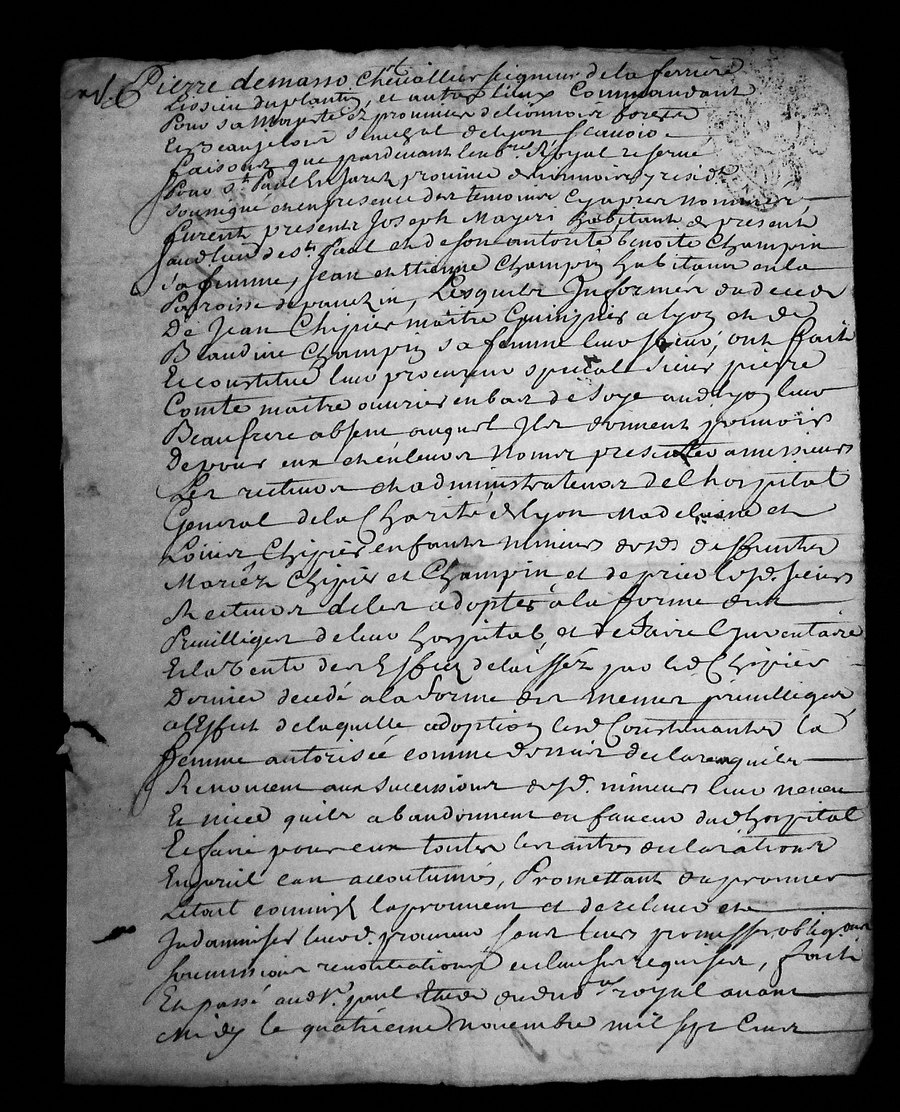 Pierre demasso chevallier seigneur de la ferriere
Lissieu duplantin, et autres lieux Commandant
Pour sa Majesté ez provinces delionnois forests
Et Beaujelois senechal de lyon scavoir
faisons que pardevant le nore Royal reservé
Pour st Paul En Jarez province de lionnois
soussigné et en presence des temoins cy apres nommés
furent presents Joseph Mayeri habitant de present
audit lieu de st Paul et de son autorité benoite Champin
sa femme, Jean et Etienne Champin habitans en la
Paroisse de panezin, Lesquels Informés du deces
De Jean Chipier maitre a lyon et de
Blandine Champin sa femme leur soeur, ont fait
Et constitué leur procureur special sieur pierre
Comte maitre ouvrier en bas de soye audit lyon leur
Beaufrere absent auquel Ils donnent pouvoir
De pour eux et en leurs noms presenter a messieurs
Les recteurs et administrateurs de l'hospital
General de la Charité de lyon Madelaine et
Louise Chipier enfants mineurs desds deffunts
Mariéz Chipier et Champin et de prier lesd. sieurs
Recteurs de les adopter à la forme des
Privilleges de leur hospital et de faire l'Inventaire
Et la vente des Effets delaissés par led Chipier
Dernier decedé a la forme des mesmes privilleges
a l'Effet de laquelle adoption lesd Constituants la
femme autorisée comme dessus declarent quils
Renoncent aux successions desd. mineurs leur neveu
Et niece quils abandonnent en faveur dud hospital
Et faire pour eux toutes les autres declarations
En pareil cas accoutumés, Promettant
et de relever et
Indamniser leurd. procureur sous leurs promesses obligons
soumissions renontiations et clauses requises, fait
Et passé aud st. paul dud nore royal avant
Midy le quatrieme novembre mil sept Cents